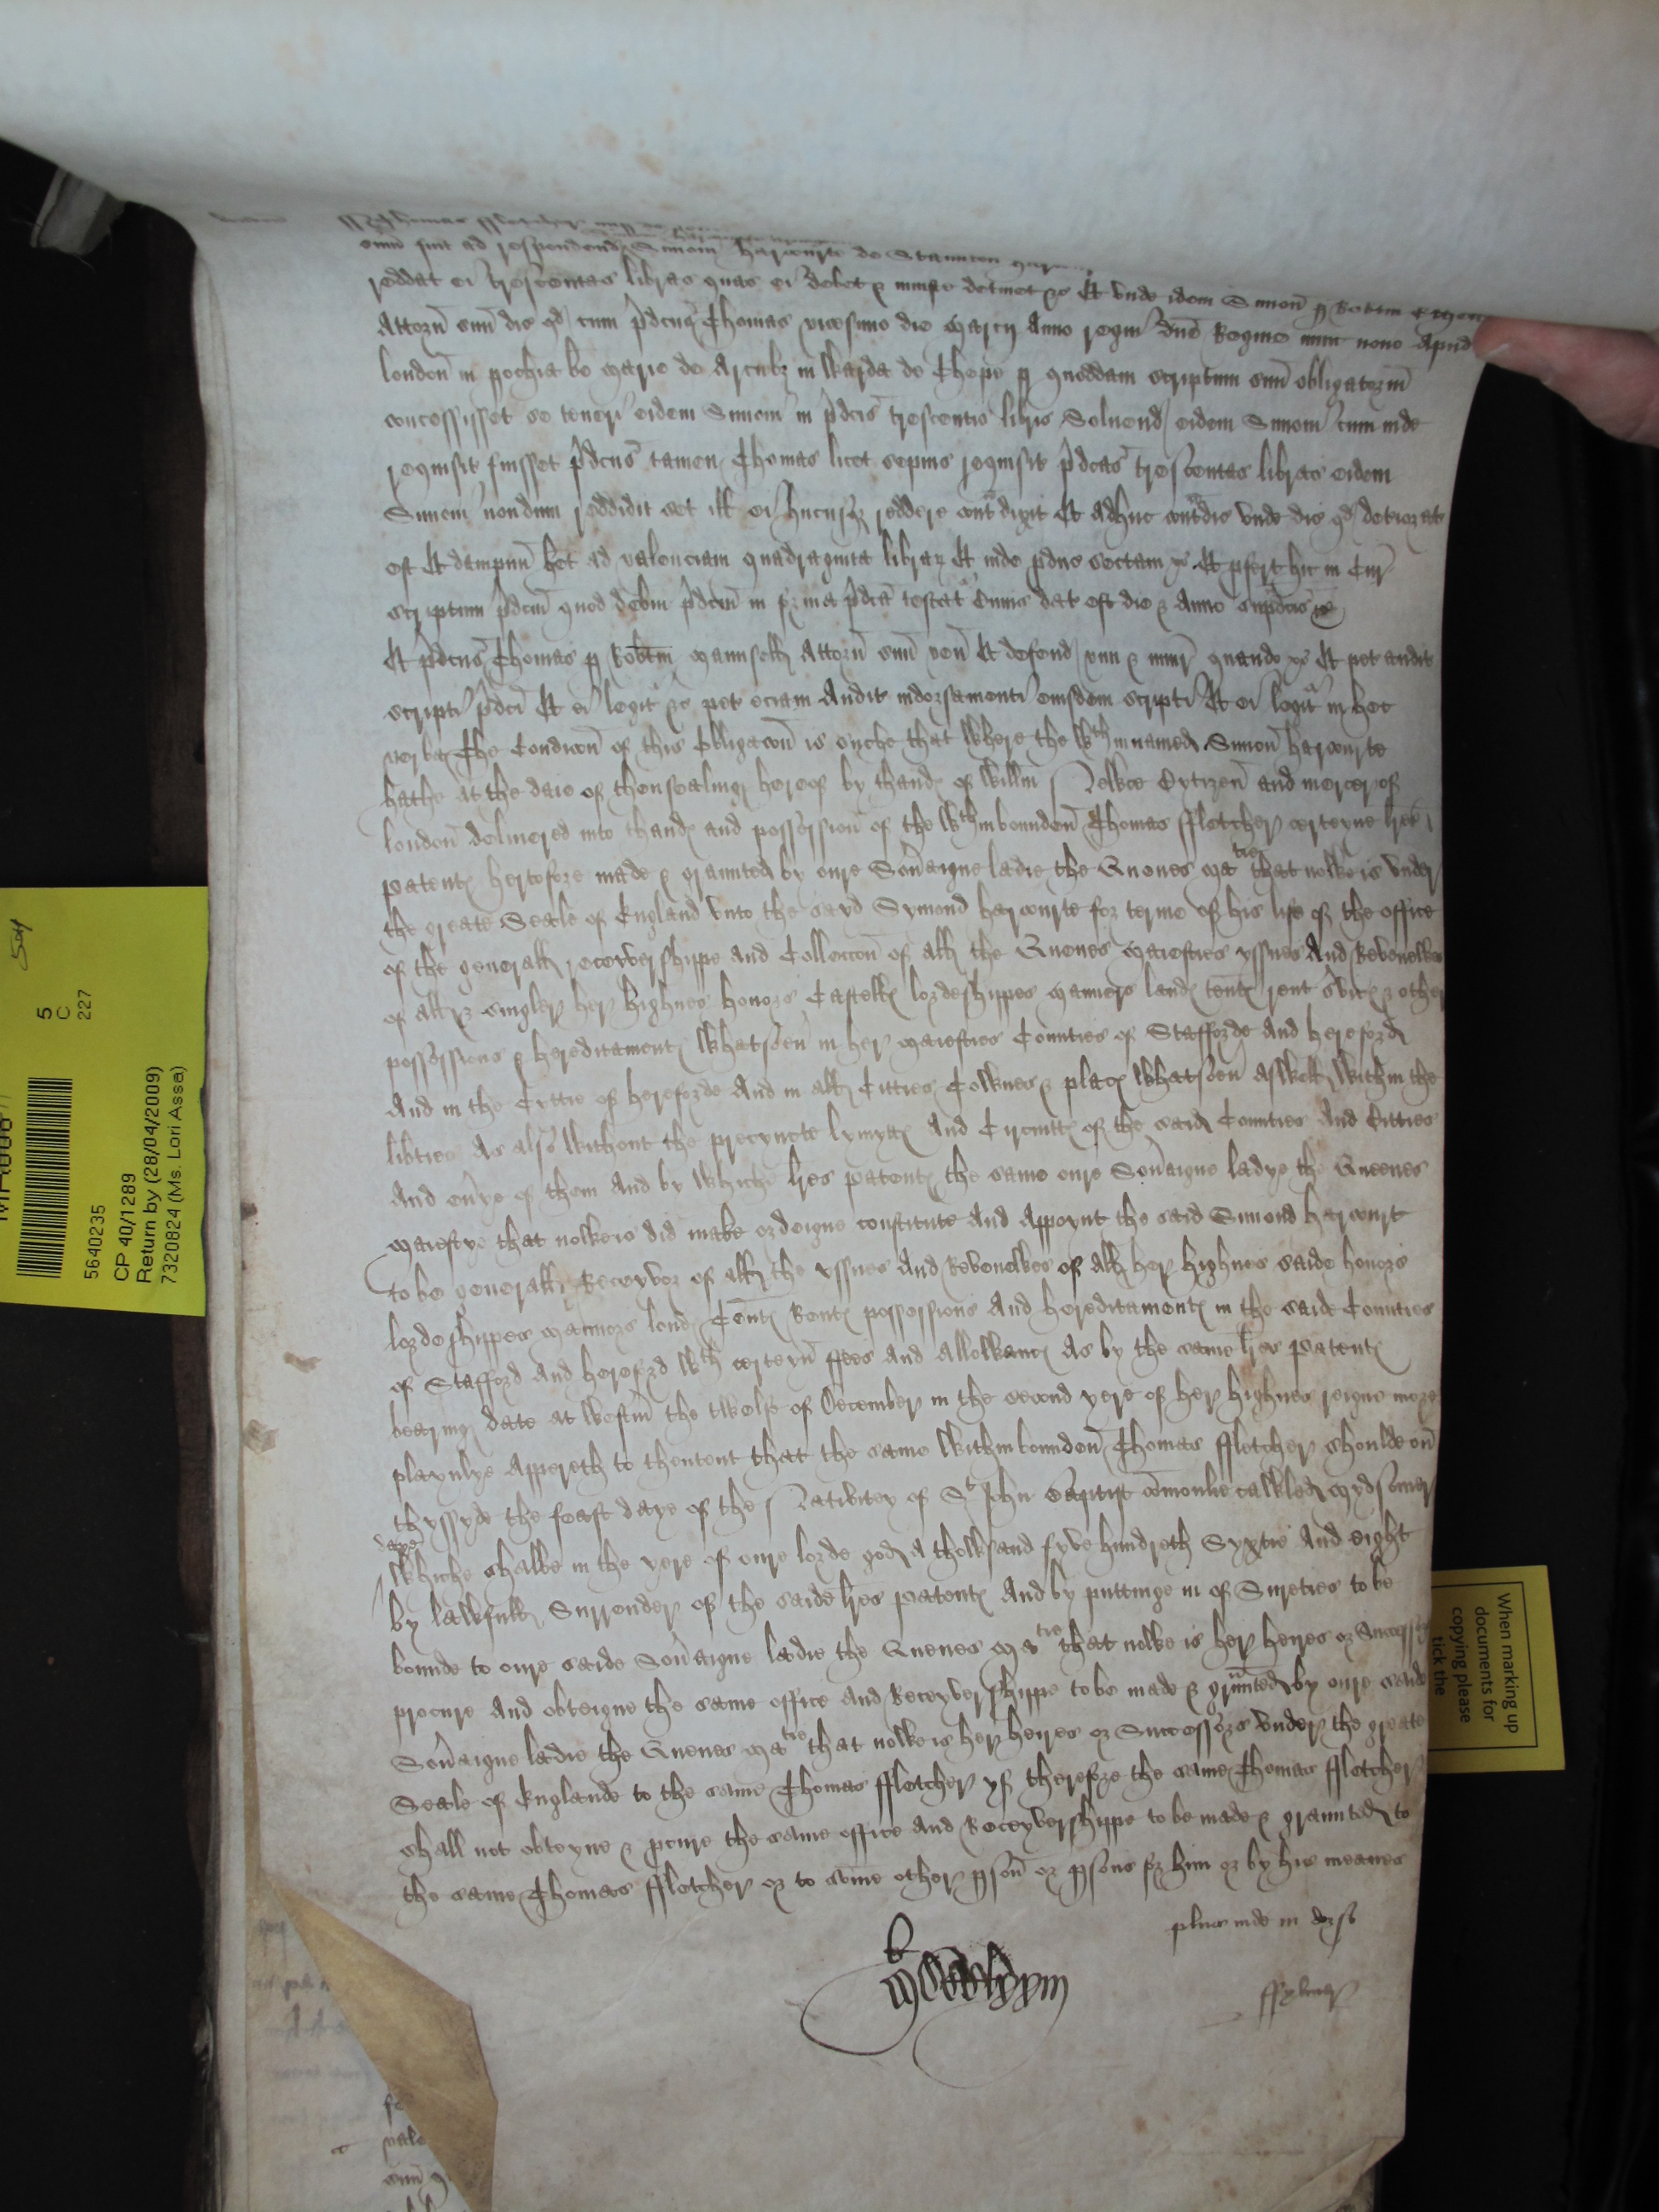 Thomas ffletcher
sum̄ fuit ad respondend Simoni harcourte de Staunton
reddat ei trescentas libras quas ei debet & iniuste detinet &c Et unde idem Simon p Robtum
Attorn̄ suū dic qd cum p̄dcus Thomas vicesimo die Marcij Anno regni dn̄e Regine nunc nono Apud
london̄ in pochia be marie de Arcubz in Warda de Chepe p quoddam scriptum suū obligatoriū
concessisset se teneri eidem Simoni in p̄dcis trescentis libris Solvend eidem Simoni cum inde
requisit fuisset p̄dcus tamen Thomas licet sepius requisit p̄dcas trescentas libras eidem
Simoni nondum reddidit set ill ei hucusqz reddere contdixit Et adhuc contdic unde dic qd deteriorat
est Et dampnū het ad valenciam quadraginta librar Et inde pduc sectam &c Et pfert hic in Cur
scriptum p̄dcm quod debm p̄dcm in forma p̄dca testat Cuius dat est die & Anno sup̄dcis &c
Et p̄dcus Thomas p Robtm Maunsell Attorn̄ suū ven̄ Et defend vim & iniur quando &c Et pet audit
scripti p̄dci Et ei legit &c pet eciam Audit indorsamenti eiusdem scripti Et ei legit in hec
verba The Condicōn of this Obligacōn is suche that Where the Wthin named Simon harcourte
hathe at the daie of thensealing hereof by thand of Willm Cytizen and mercer of
london delivered into thand and possession of the Wthin bounden Thomas ffletcher certeyne lres
patent hertofore made & graunted by oure Sov̄aigne ladie the Quenes Matie that nowe is under
the greate Seale of England unto the sayd Symond harcourte for terme of his life of the office
of the generall receyvershippe and Collectcōn of all the Quenes Maiesties yssues And Revenewes
of all & singler her highnes honors Castell lordeshippes Manners land tent rent s̄vic & other
possessions & hereditament Whatsoeū in her Maiesties Counties of Stafforde And hereford
And in the Cyttie of hereforde And in all Citties Townes & plac Whatsoeū Aswell Within the
libties As also Without the precyncte lymytt And Circuitt of the said Counties And Citties
And ev̄ye of them And by Whiche lres patent the same oure Sov̄aigne ladye the Queenes
Maiestye that nowe is did make ordeigne constitute And Appoynt the said Simond harcourt
to be generall Receyvor of all the yssues And Revenewes of all her highnes saide honors
lordeshippes Mannors lond Tent Rent possessions And hereditament in the saide Counties
of Stafford And hereford Wth certeyn ffees And Allowanc As by the same lres patent
bearing date at Westm̄ the twelfe of December in the second yere of her highnes reigne more
playnlye Appereth to thentent that the same Within bounden Thomas ffletcher shoulde on
thyssyde the feast daye of the Nativitey of St John Baptist com̄onlie called Mydsomer
daye
Whiche shalbe in the yere of oure lorde god A thowsand fyve hundreth Syxtie And eight
by lawfull Surrender of the saide lres patent And by puttinge in of Sureties to be
bounde to oure saide Sov̄aigne ladie the Quenes Matie that nowe is her heyres or Successors
procure And obteigne the same office And Receyvershippe to be made & graunted by oure saide
Sov̄aigne ladie the Quenes Matie that nowe is her heires or Successors under the greate
Seale of Englande to the same Thomas ffletcher yf therefore the same Thomas ffletcher
shall not obteyne & pcure the same office And Receyvershippe to be made & graunted to
the same Thomas ffletcher or to some other pson or psons for him or by his meanes
plus inde in dorso
504
5
C
227
5640235
CP 40/1289
Return by (28/04/2009)
7320824 (Ms. Lori Assa)
When marking up
documents for
copying please
tick the